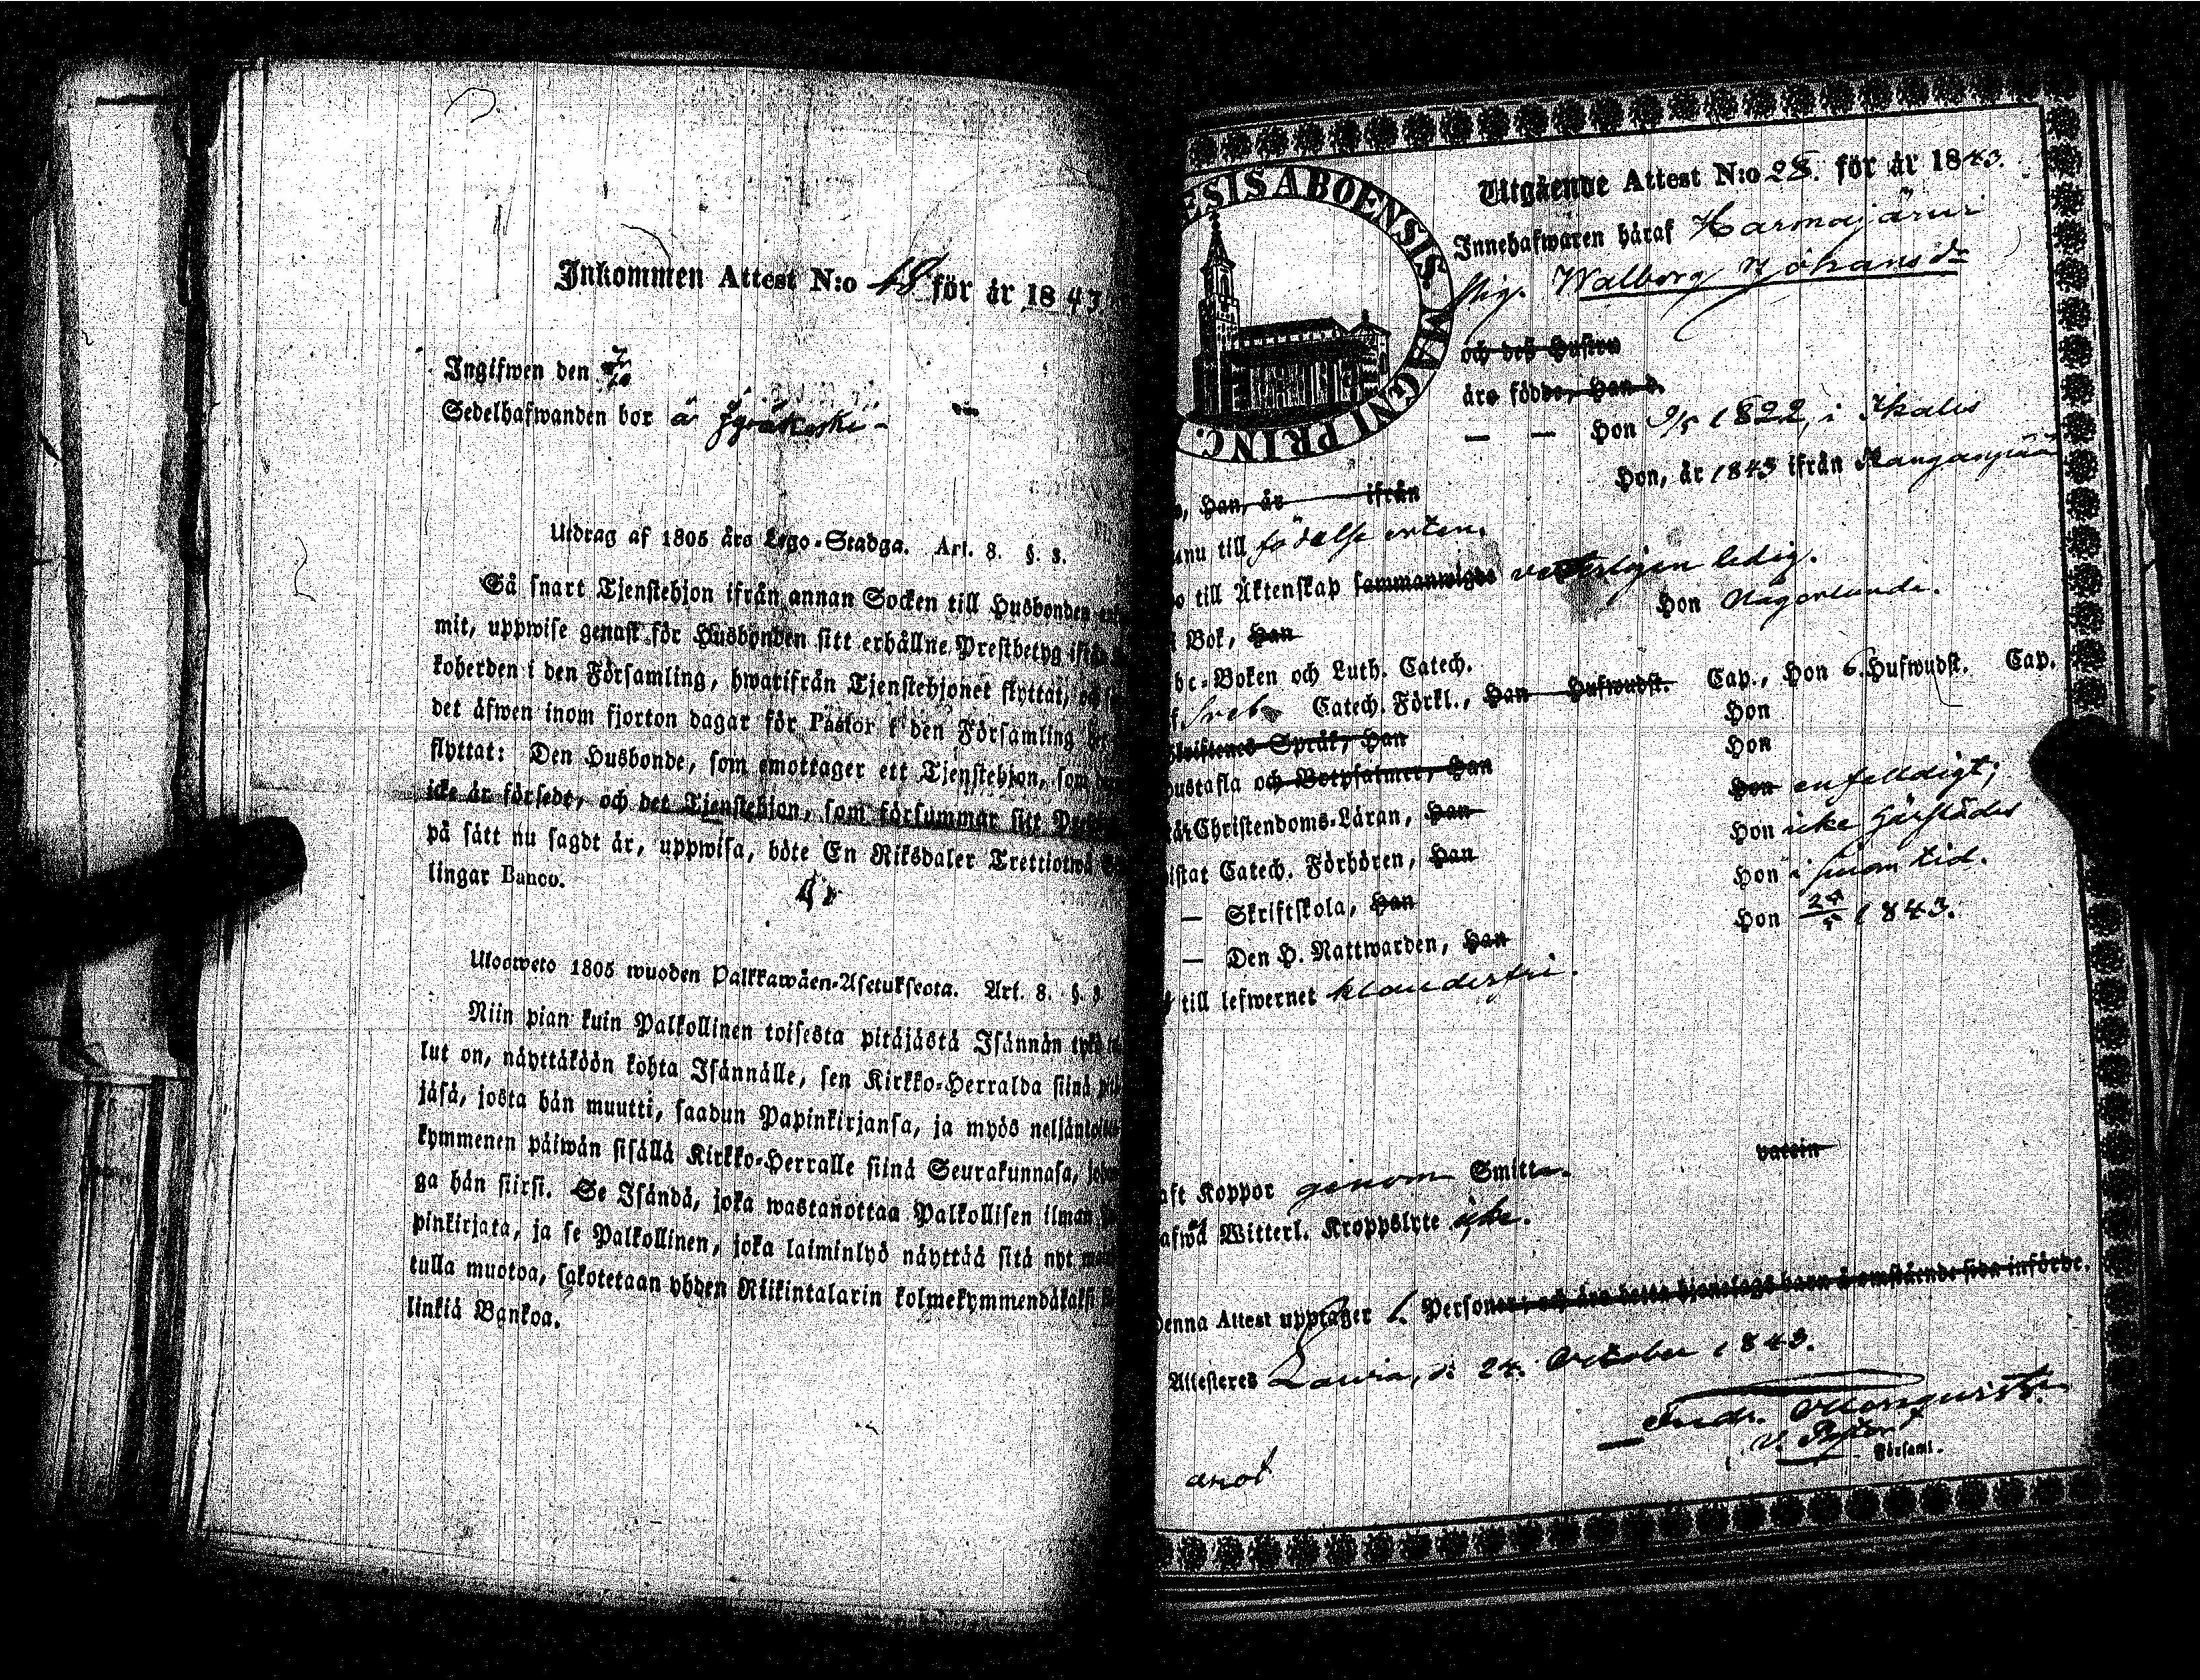 Inkommen Attest N:o 18 för år 1843
Ingifwen den
Sedelhafwanden bor å
Utdrag af 1805 års Lego-Stadga. Art. 8. §. 8.
Så snart Tjenstehjon ifrån annan Socken till Husbonden
mit, uppwise genast för Husbonden sitt erhållne Prestbetyg ifrån
koherden i den Församling, hwarifrån Tjenstehjonet flyttat, och
det äfwen inom fjorton dagar för Pastor i den Församling
flyttat: Den Husbonde, som emottager ett Tjenstehjon, som
icke är försedt, och det Tjenstehjon, som försummar sitt
på sätt nu sagdt är, uppwisa, böte En Riksdaler Trettiotwå
lingar Banco.
Ulosweto 1805 wuoden Palkkawäen-Asetuksesta. Art. 8. §. 8.
Niin pian kuin Palkollinen toisesta pitäjästä Isännän tykö
lut on, näyttäköön kohta Isännälle, sen Kirkko-Herralda siinä
jäsä, josta hän muutti, saadun Papinkirjansa, ja myös neljäntoista
kymmenen päiwän sisällä Kirkko-Herralle siinä Seurakunnasa,
ga hän siirsi. Se Isändä, joka wastanottaa Palkollisen ilman
pinkirjata, ja se Palkollinen, joka laiminlyö näyttää sitä nyt
tulla muotoa, sakotetaan yhden Riikintalarin kolmekymmendäkaksi
linkiä Bankoa.
ESIS ABOENSIS. MAGNI PRINC.
Utgående Attest N:o 28. för år 1843.
Innehafwaren häraf Harmajärwi
Pig. Walborg Johansd:r
och deß Hustru
äro födde, Han d.
— — Hon 9/5 1822, i Ikalis
Hon, år 1843 ifrån Kangasjärwi
, Han, år ifrån
nu till födelse orten.
till Äktenskap sammanwigde veterligen ledig.
Bok, Han Hon någorlunda.
bc-Boken och Luth. Catech.
Sveb. Catech. Förkl., Han Hufwudst. Cap., Hon 6 Hufwudst. Cap.
Skriftenes Språk, Han Hon
Hustafla och Botpsalmer, Han Hon
Christendoms-Läran, Han Hon enfaldigt;
istat Catech. Förhören, Han Hon icke härstädes
— Skriftskola, Han Hon i sinom tid.
— Den H. Nattwarden, Han Hon 28/5 1843.
till lefwernet klanderfri.
aft Koppor genom Smitta. vaccin
Witterl. Kroppslyte icke.
Denna Attest upptager 1. Personer; och äro detta hjonelags barn å omstående sida införde.
Attesteres Lawia, d: 24. October 1843.
Andr.
V. Pastor
Församl.